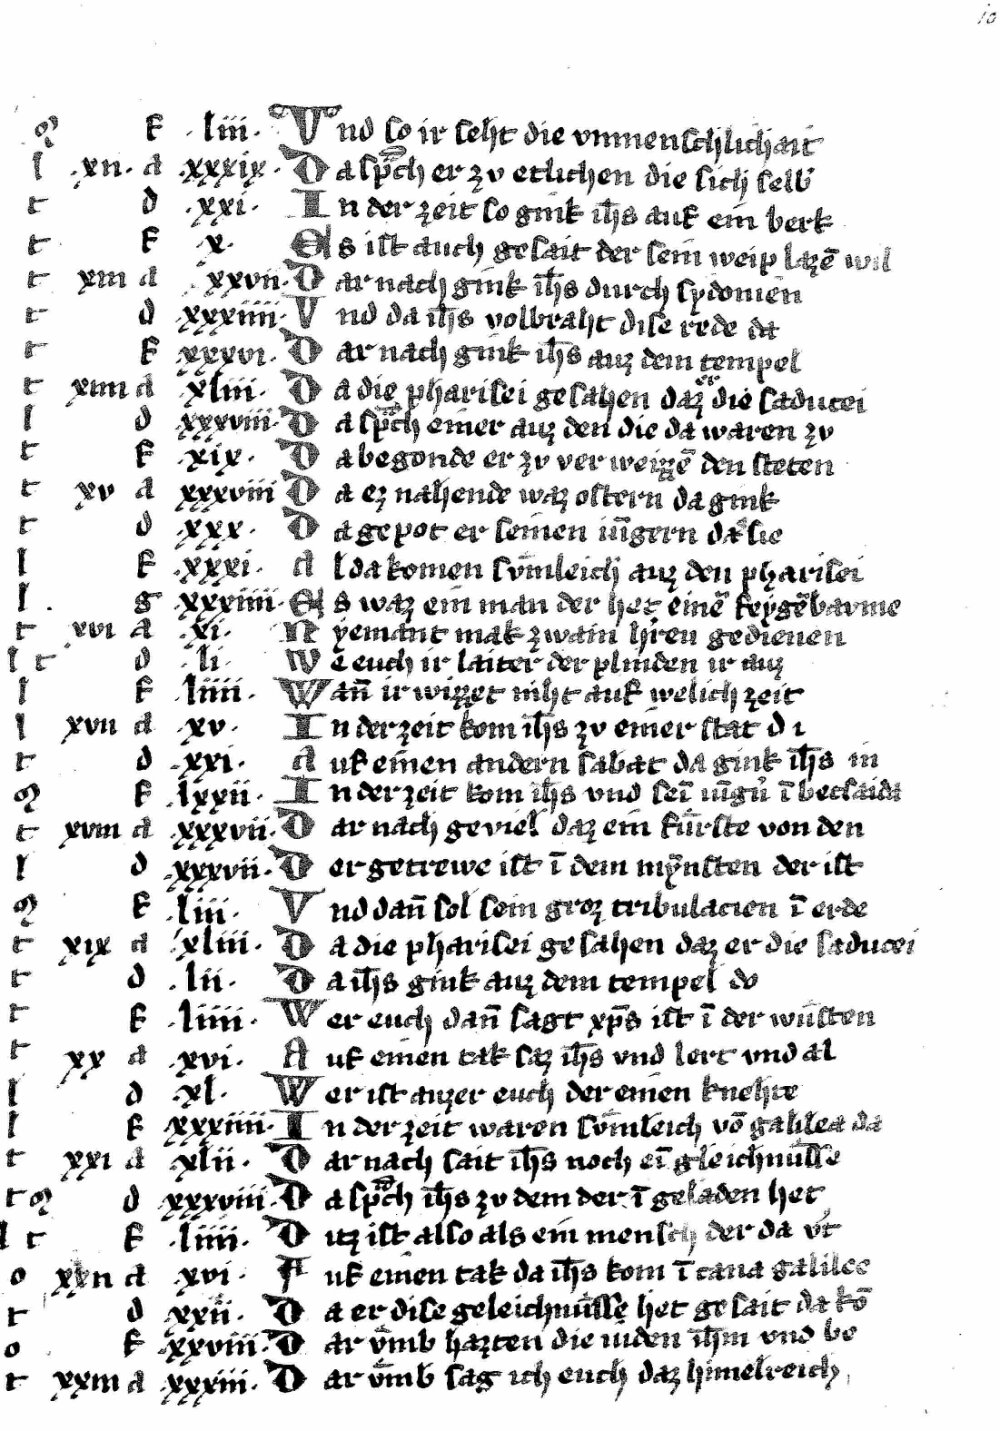 10
g f ·liii· Und so ir seht die vnmenschlichait
l ·xii· a ·xxxix· Da sp͞ch er zv etlichen die sich selb
t d ·xxi· In der zeit so gink ih̄s auf ein berk
t f ·x· Es ist auch gesait der sein weip lazē wil
t xiii a ·xxvii· Dar nach gink ih̄s durch sydonien
t d ·xxxiiii· Vnd da ih̄s volbraht dise rede da
t f ·xxxvi· Dar nach gink ih̄s auz dem tempel
t xiiii a ·xliii· Da die pharisei gesahen daz die saducei
l d ·xxxviii· Da sp͞ch einer auz den die da waren zv
t f ·xix· Da begonde er zv verweizzē den steten
t xv a ·xxxviii Da ez nahende waz ostern da gink
t d ·xxx· Da gepot er seinen iūgern da sie
l f ·xxxi· Al da komen svmleich auz den pharisei
l g ·xxxiiii· Es waz ein man der het einē feygēbavme
t xvi a ·xi· Nyemant mak zwain hren gedienen
l t d ·li· We euch ir laiter der plinden ir auz
l f ·liiii· Wan̄ ir wizzet niht auf welich zeit
l xvii a ·xv· In der zeit kom ih̄s zv einer stat d i
t d ·xxi· Auf einen andern sabat da gink ih̄s in
g f ·lxxii· In der zeit kom ih̄s vnd sei͞ iu͞g i͞ betsaida
t xviii a ·xxxvii· Dar nach geviel daz ein fürste von den
l d ·xxxvii· Der getrewe ist i͞ dem mynsten der ist
g f ·liii· Vnd dan̄ sol sein groz tribulacien i͞ erde
t xix a ·xliii· Da die pharisei gesahen daz er die saducei
t d ·lii· Da ih̄s gink auz dem tempel do
t f ·liiii· Wer euch dan̄ sagt xp̄s ist i͞ der wüsten
t xx a ·xvi· Auf einen tak saz ih̄s vnd lert vnd al
l d ·xl· Wer ist auzer euch der einen knehte
l f ·xxxiiii· In der zeit waren svmleich vō galilea da
t xxi a ·xlii· Dar nach sait ih̄s noch ei͞ gleichnüsse
t g d ·xxxviii· Da sp͞ch ih̄s zv dem der i͞ geladen het
l t f ·liiii· Ditz ist also als ein mensch der da vt
o xxii a ·xvi· Auf einen tak da ih̄s kom i͞ cana galilee
t d ·xxii· Da er dise geleichnüsse het gesait da kō
o f ·xxviii· Dar vmb hazten die iuden ih̄m vnd be
t xxiii a ·xxxiii· Dar vmb sag ich euch daz himelreich